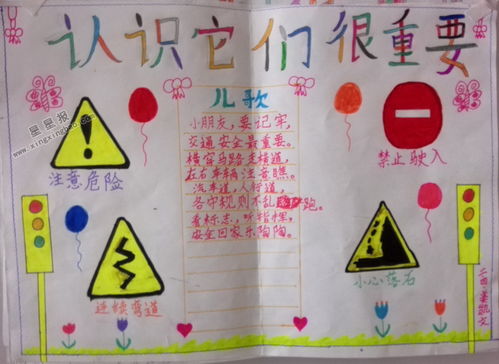 认识它们很重要
星星报
www.xingxingbao.com
注意危险
儿歌
小朋友,要记牢,
交通安全最重要。
横穿马路走横道,
左右车辆注意瞧。
汽车道,人行道,
各守规则不乱跑。
看标志,听指挥,
安全回家乐陶陶。
禁止驶入
连续弯道
小心落石